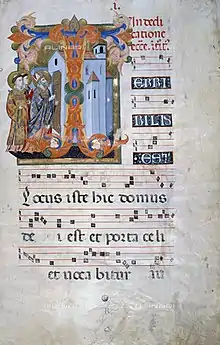 I.
In dedi
catione
ecce. int.
T
ERRI
BILIS
EST
Locus iste hic domus
de i est et porta celi
et uoca bitur au